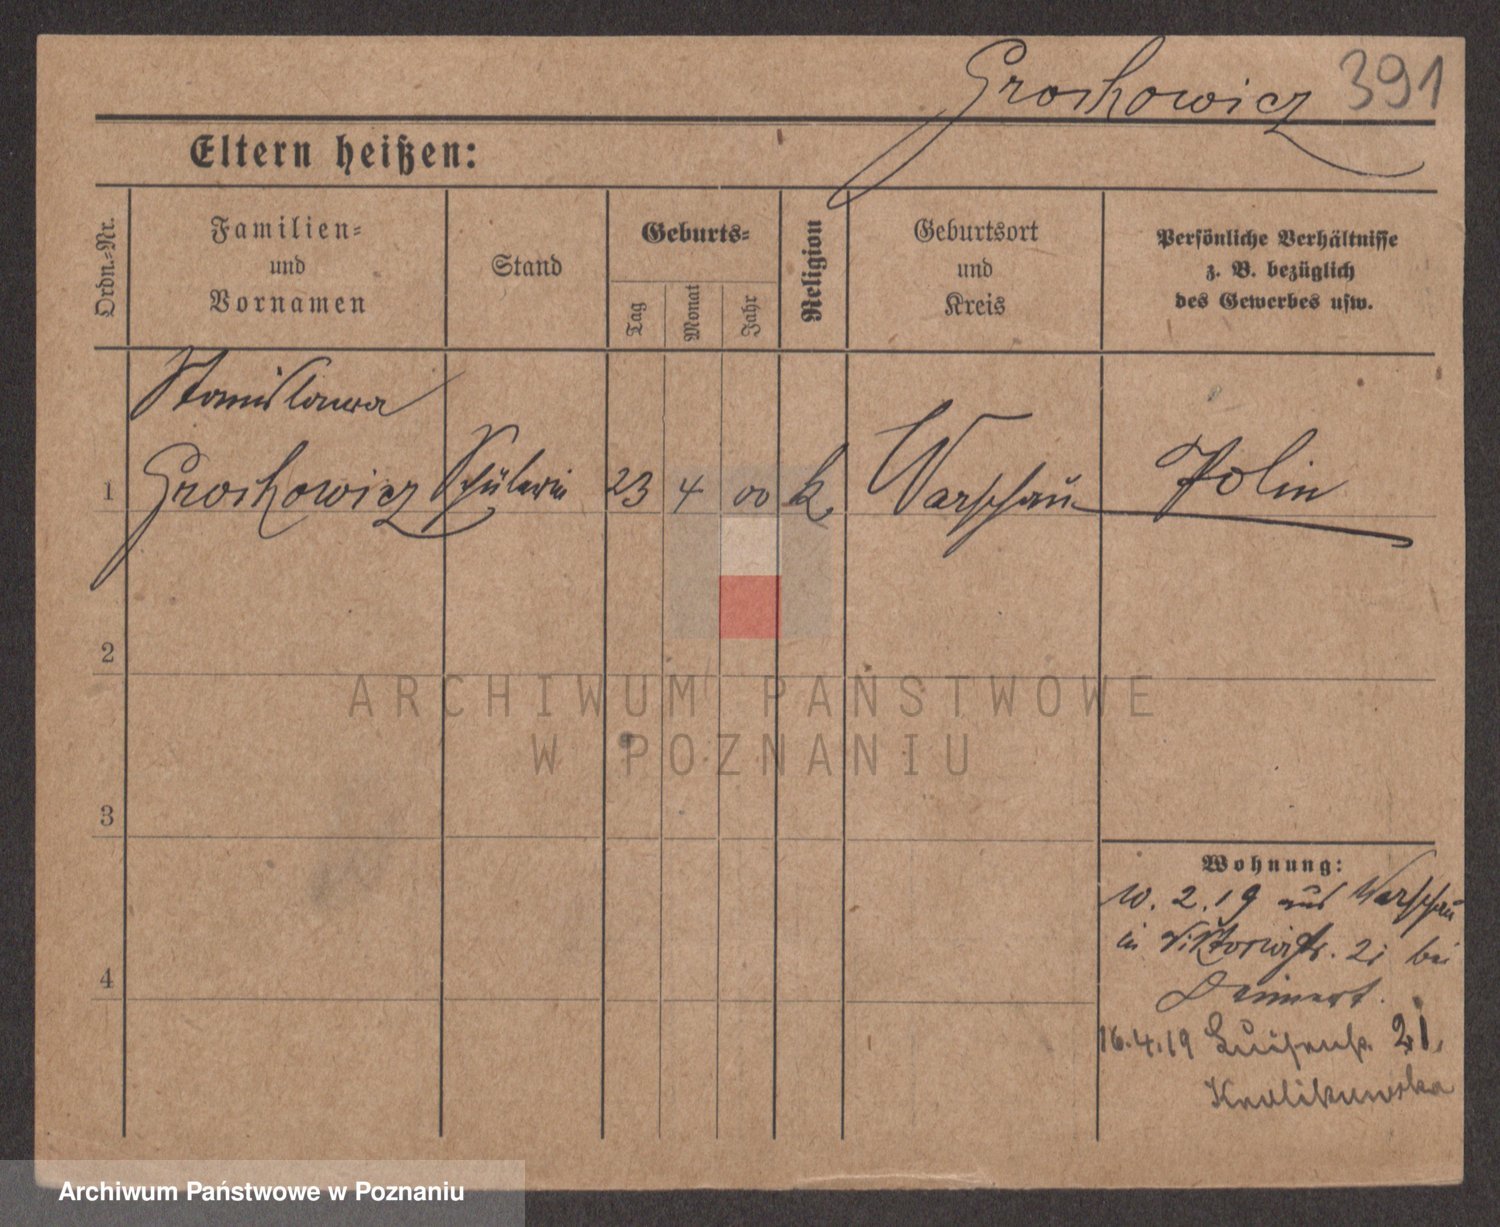 Grochowicz 391
Eltern heißen:
Ordn.-Nr.
Familien-
und
Vornamen
Stand
Geburts-
Tag
Monat
Jahr
Religion
Geburtsort
und
Kreis
Persönliche Verhältnisse
z. B. bezüglich
des Gewerbes usw.
Stanislawa
1 Grochowicz Schülerin 23 4 00 k. Warschau Polin
2
ARCHIWUM PAŃSTWOWE
W POZNANIU
3
Wohnung:
10. 2. 19 aus Warschau
in Viktoriastr. 21 bei
4
16.4.19 Luisenstr. 21.
Krolikowska
Archiwum Państwowe w Poznaniu